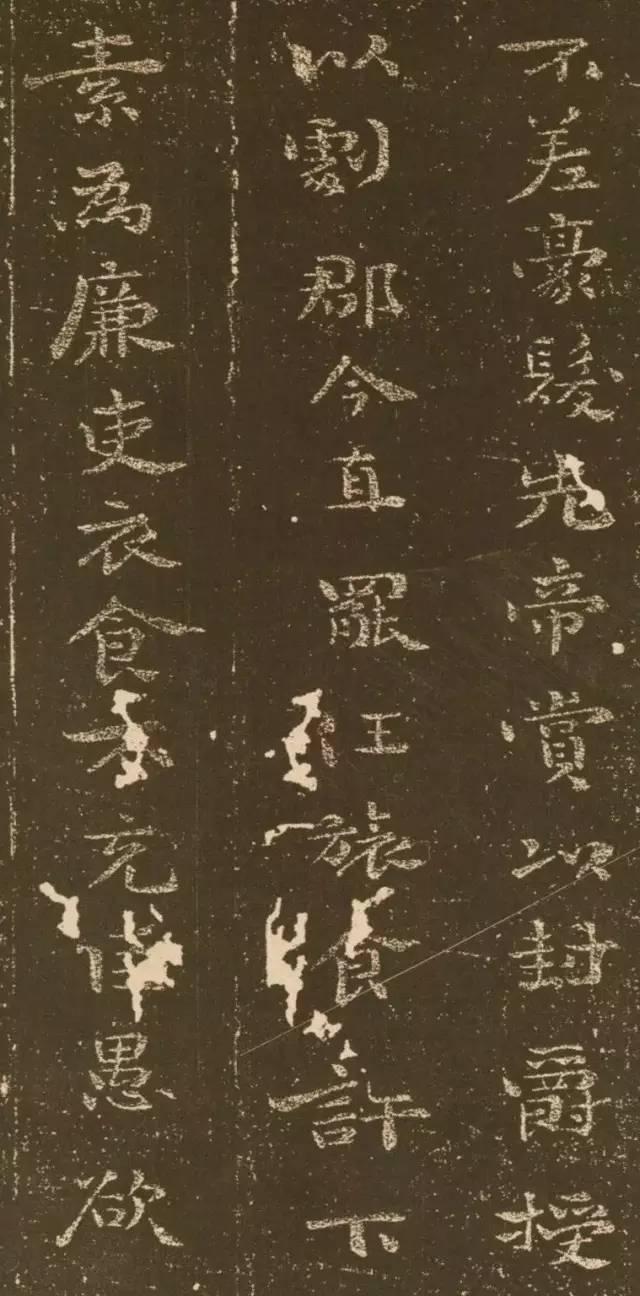 不差豪髮先帝賞以封爵授
以劇郡今直罷任旅食許下
素為廉吏衣食不充臣愚欲